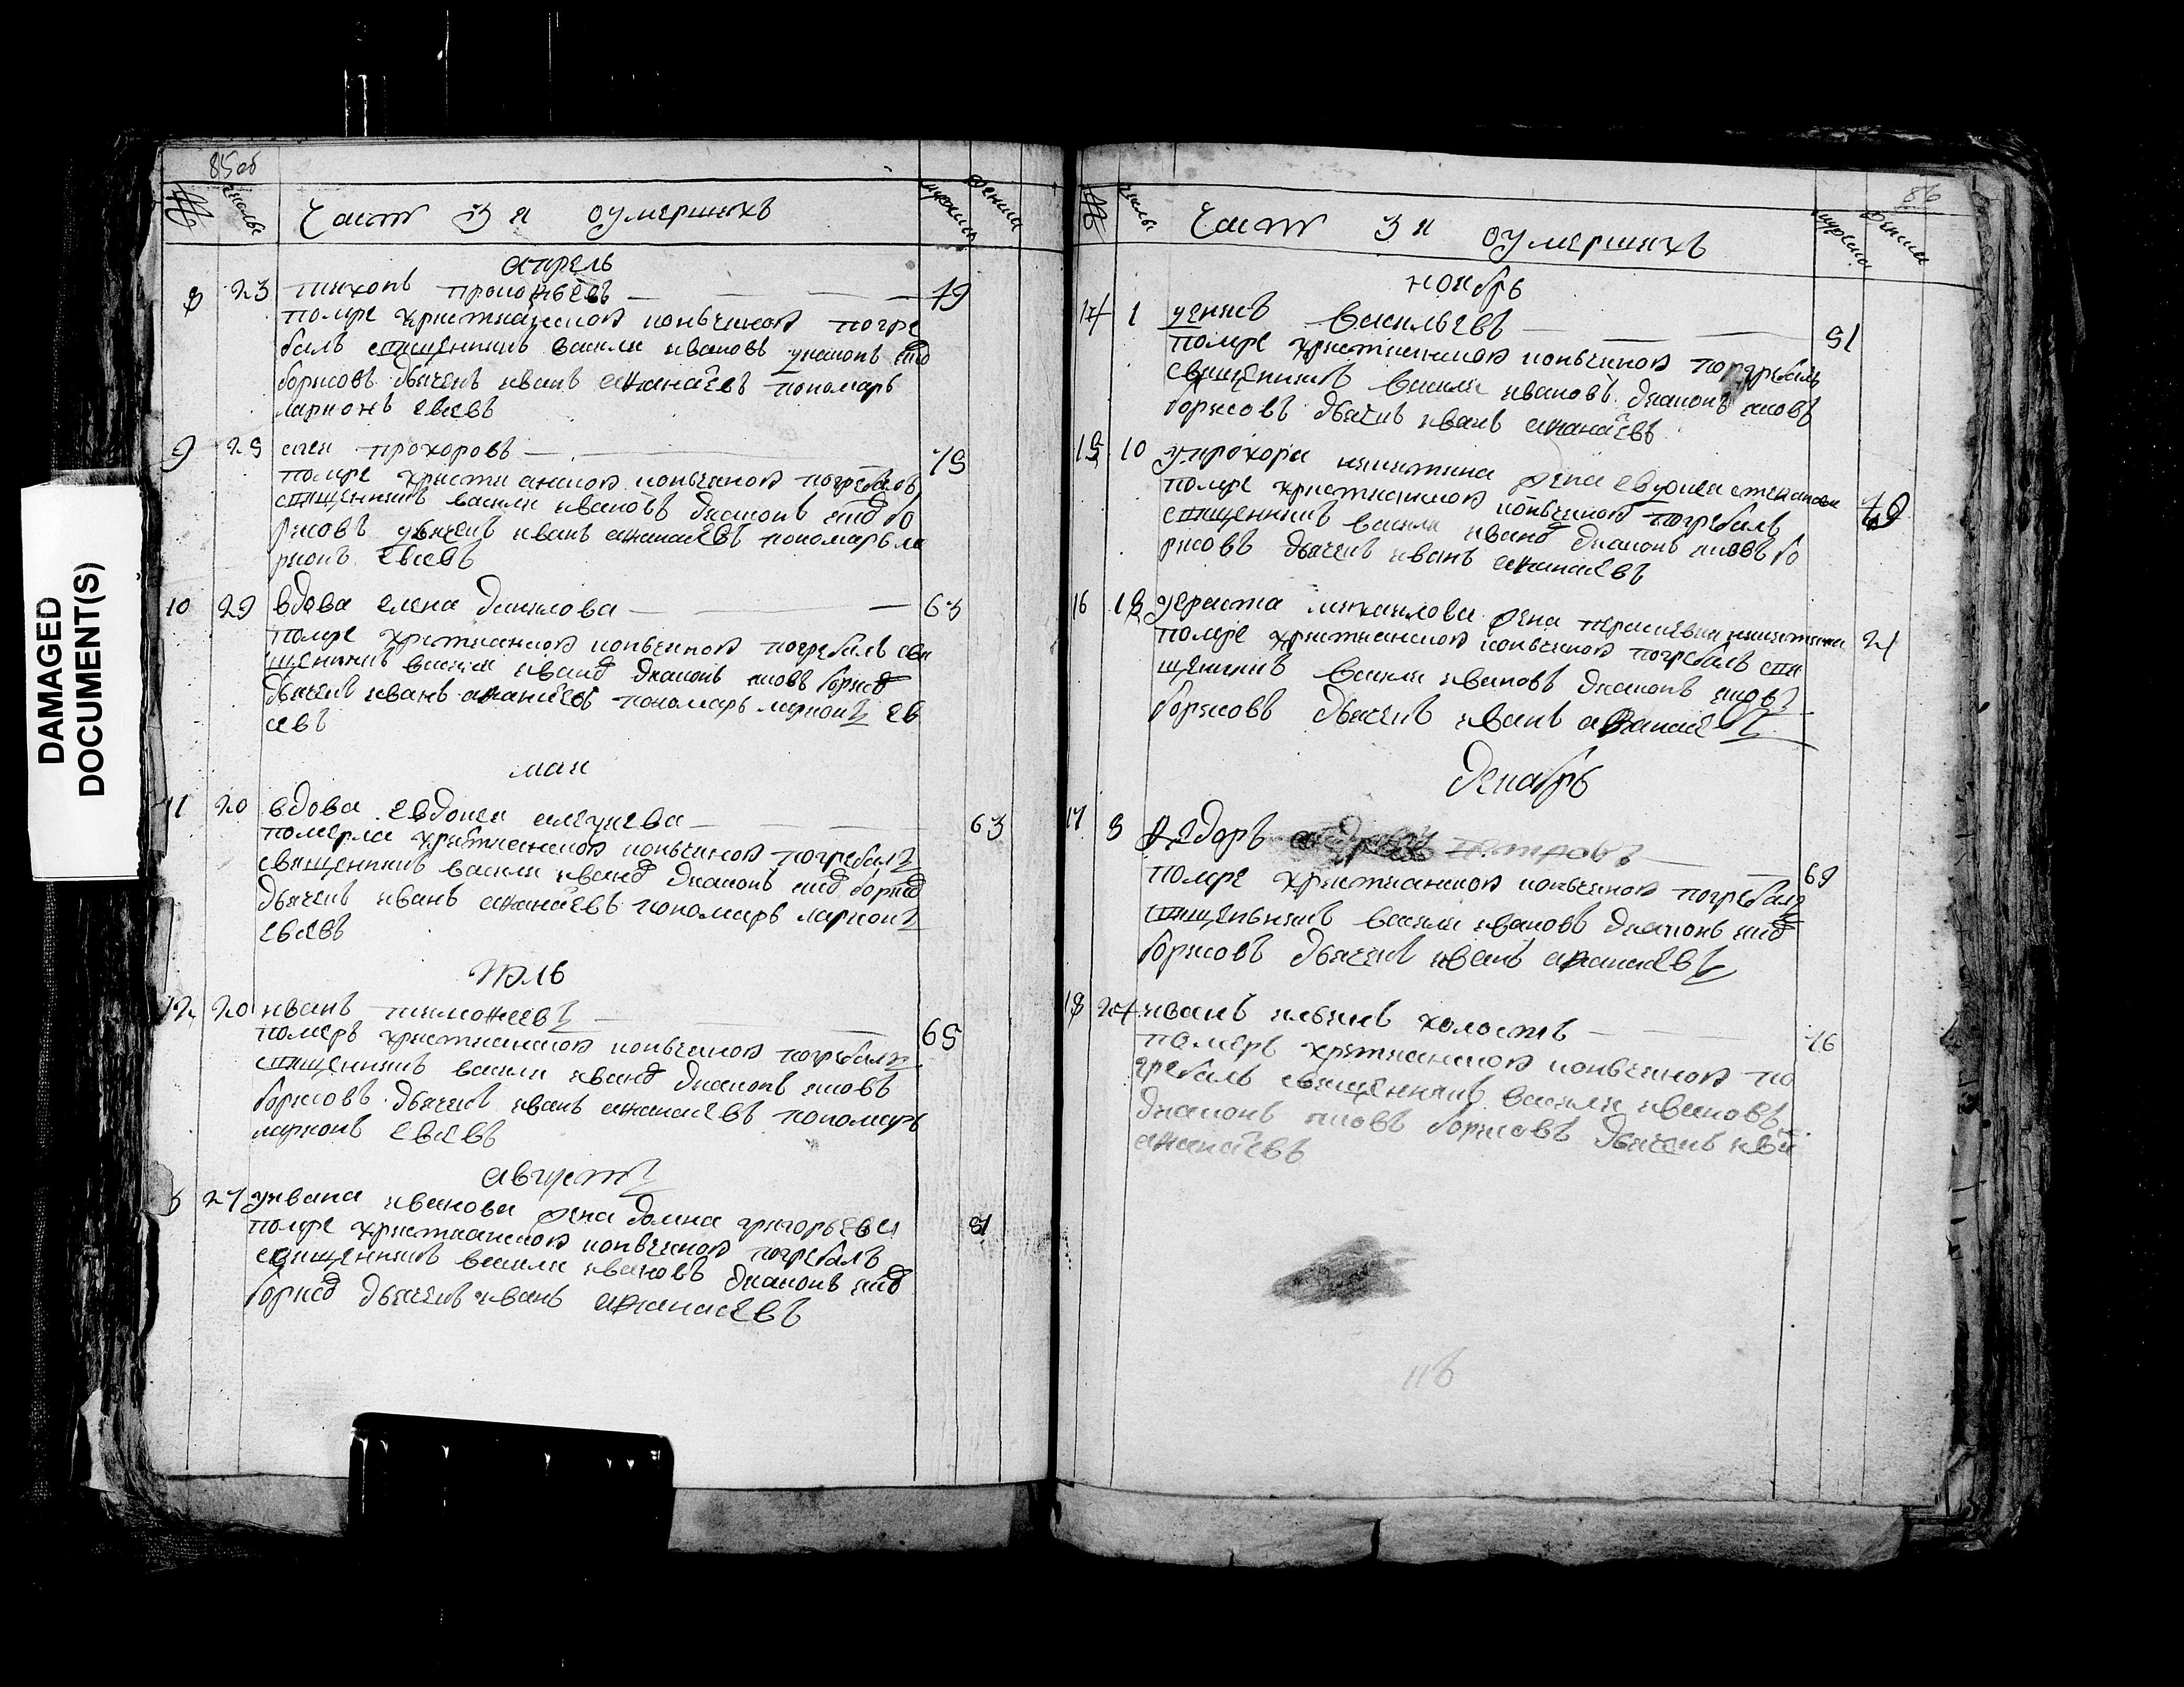 85об
№ числы Часть 3 я оумершихъ мужска женска
апрель
8 23 тихонъ прокофьевъ 79
помре христианскою кончиною погре
балъ священникъ васили ивановъ диаконъ яко
борисовъ дьячекъ иванъ афанасевъ пономарь
ларионъ евсевъ
9 25 прохоровъ 75
помре христианскою кончиною погребалъ
священникъ васили ивановъ диаконъ яков бо
рисовъ дьячекъ иванъ афанасевъ пономарь ла
рионъ евсевъ
10 29 вдова елена данилова 63
помре христианскою кончиною погребалъ свя
щенникъ васили иванов диаконъ яковъ борисов
дьячекъ иванъ афанасев пономарь ларионъ ев
севъ
маи
11 20 вдова евдокея алексеева 63
померла христианскою кончиною погребалъ
священникъ васили иванов диаконъ яков борисов
дьячекъ иванъ афанасевъ пономарь ларионъ
евсевъ
июль
12 20 иванъ тимофеевъ 65
померъ христианскою кончиною погребалъ
священникъ васили иванов диаконъ яковъ
борисовъ дьячекъ иванъ афанасевъ пономарь
ларионъ евсевъ
августъ
27 уивана иванова жена домна григорьева 51
помре христианскою кончиною погребалъ
священникъ васили ивановъ диаконъ яков
борисов дьячекъ иванъ афанасевъ
86
№ числы Часть 3 я оумершихъ мужска женска
ноябрь
14 1 васильевъ 51
помре христианскою кончиною погребалъ
священникъ васили ивановъ диаконъ яковъ
борисовъ дьячекъ иванъ афанасевъ
15 10 упрохора никитина жена евдокея степанова
помре христианскою кончиною погребалъ 79
священникъ васили иванов диаконъ яковъ бо
рисовъ дьячекъ иванъ афанасевъ
16 18 михаилова жена параскевия никитина
помре христианскою кончиною погребалъ свя 21
щенникъ васили ивановъ диаконъ яковъ
борисовъ дьячекъ иванъ афанасевъ
декабрь
17 3 федоръ
помре христианскою кончиною погребалъ 69
священникъ васили ивановъ диаконъ яков
борисовъ дьячекъ иванъ афанасевъ
18 24 иванъ ильинъ холостъ 16
померъ христианскою кончиною по
гребалъ священникъ васили ивановъ
диаконъ яковъ борисовъ дьячекъ ива
афанасевъ
116
DAMAGED
DOCUMENT(S)